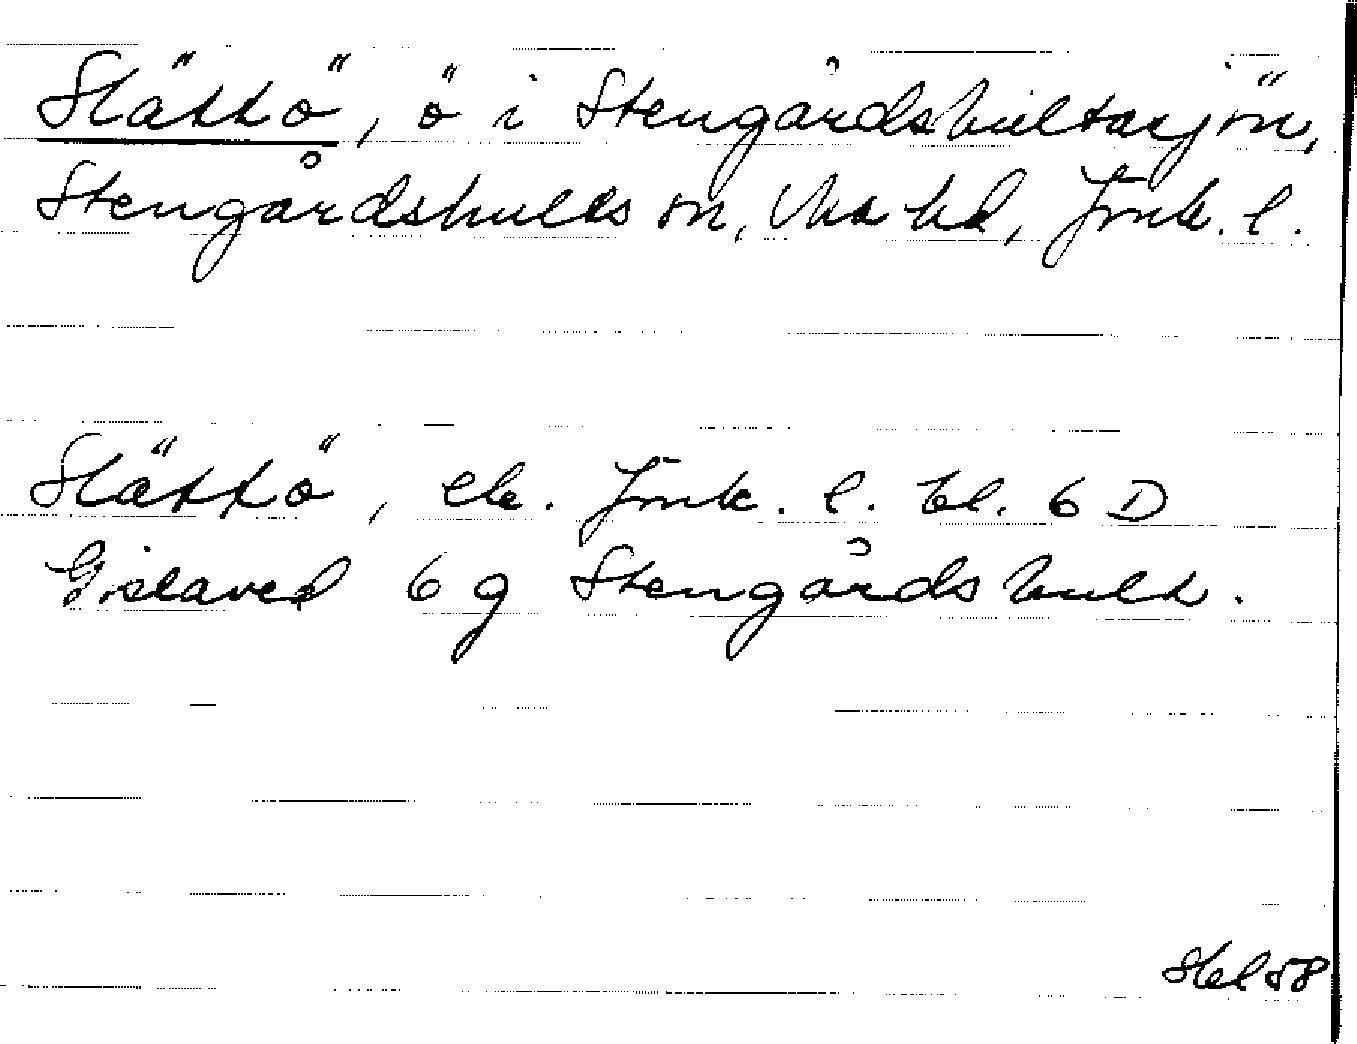 Slättö, ö i Stengårdshultasjön,
Stengårdshults sn, Mo hd, Jönk. l.
Slättö, ek. Jönk. l. bl. 6 D
Gislaved 6 g Stengårdshult.
58